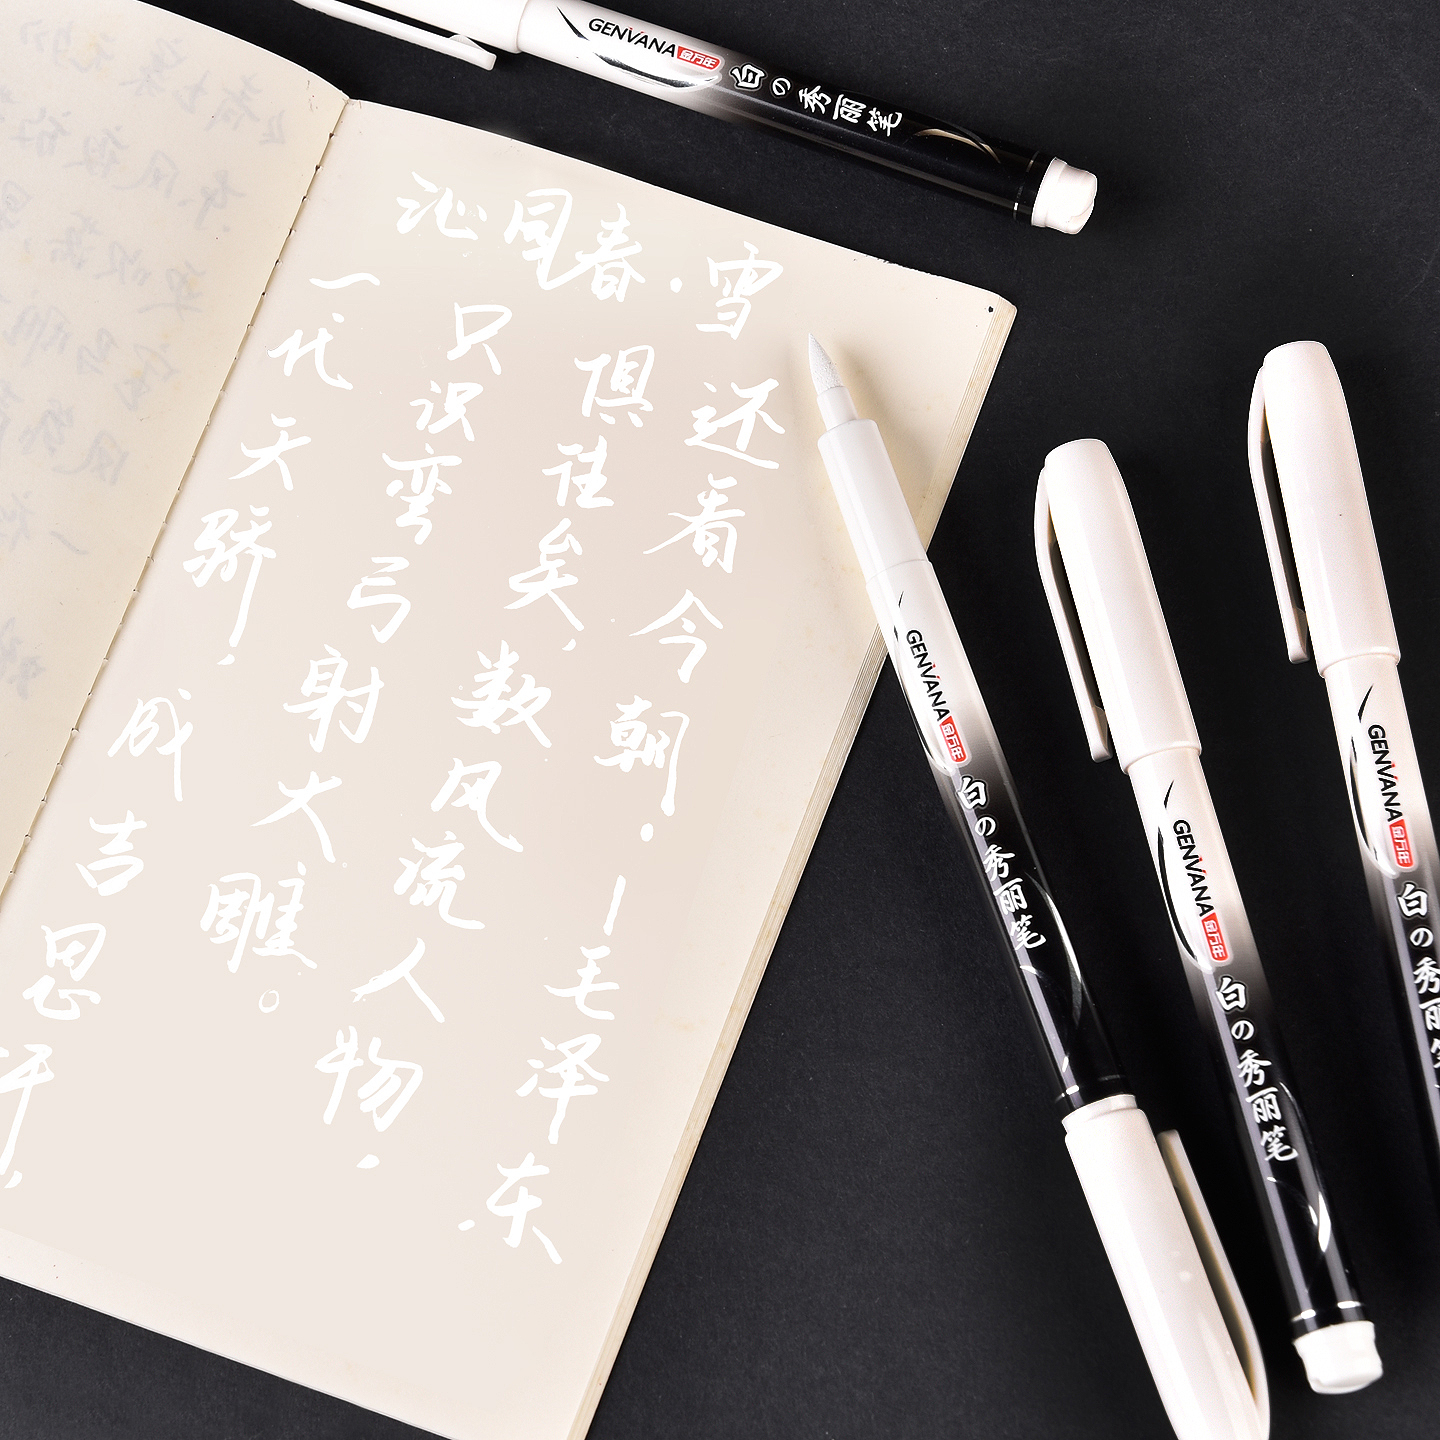 GENVANA 金万年 白の秀丽笔
沁园春·雪
一代天骄，成吉思汗，
只识弯弓射大雕。
俱往矣，数风流人物，
还看今朝.
—毛泽东
GENVANA 金万年 白の秀丽笔
GENVANA 金万年 白の秀丽笔
GENVANA 金万年 白の秀丽